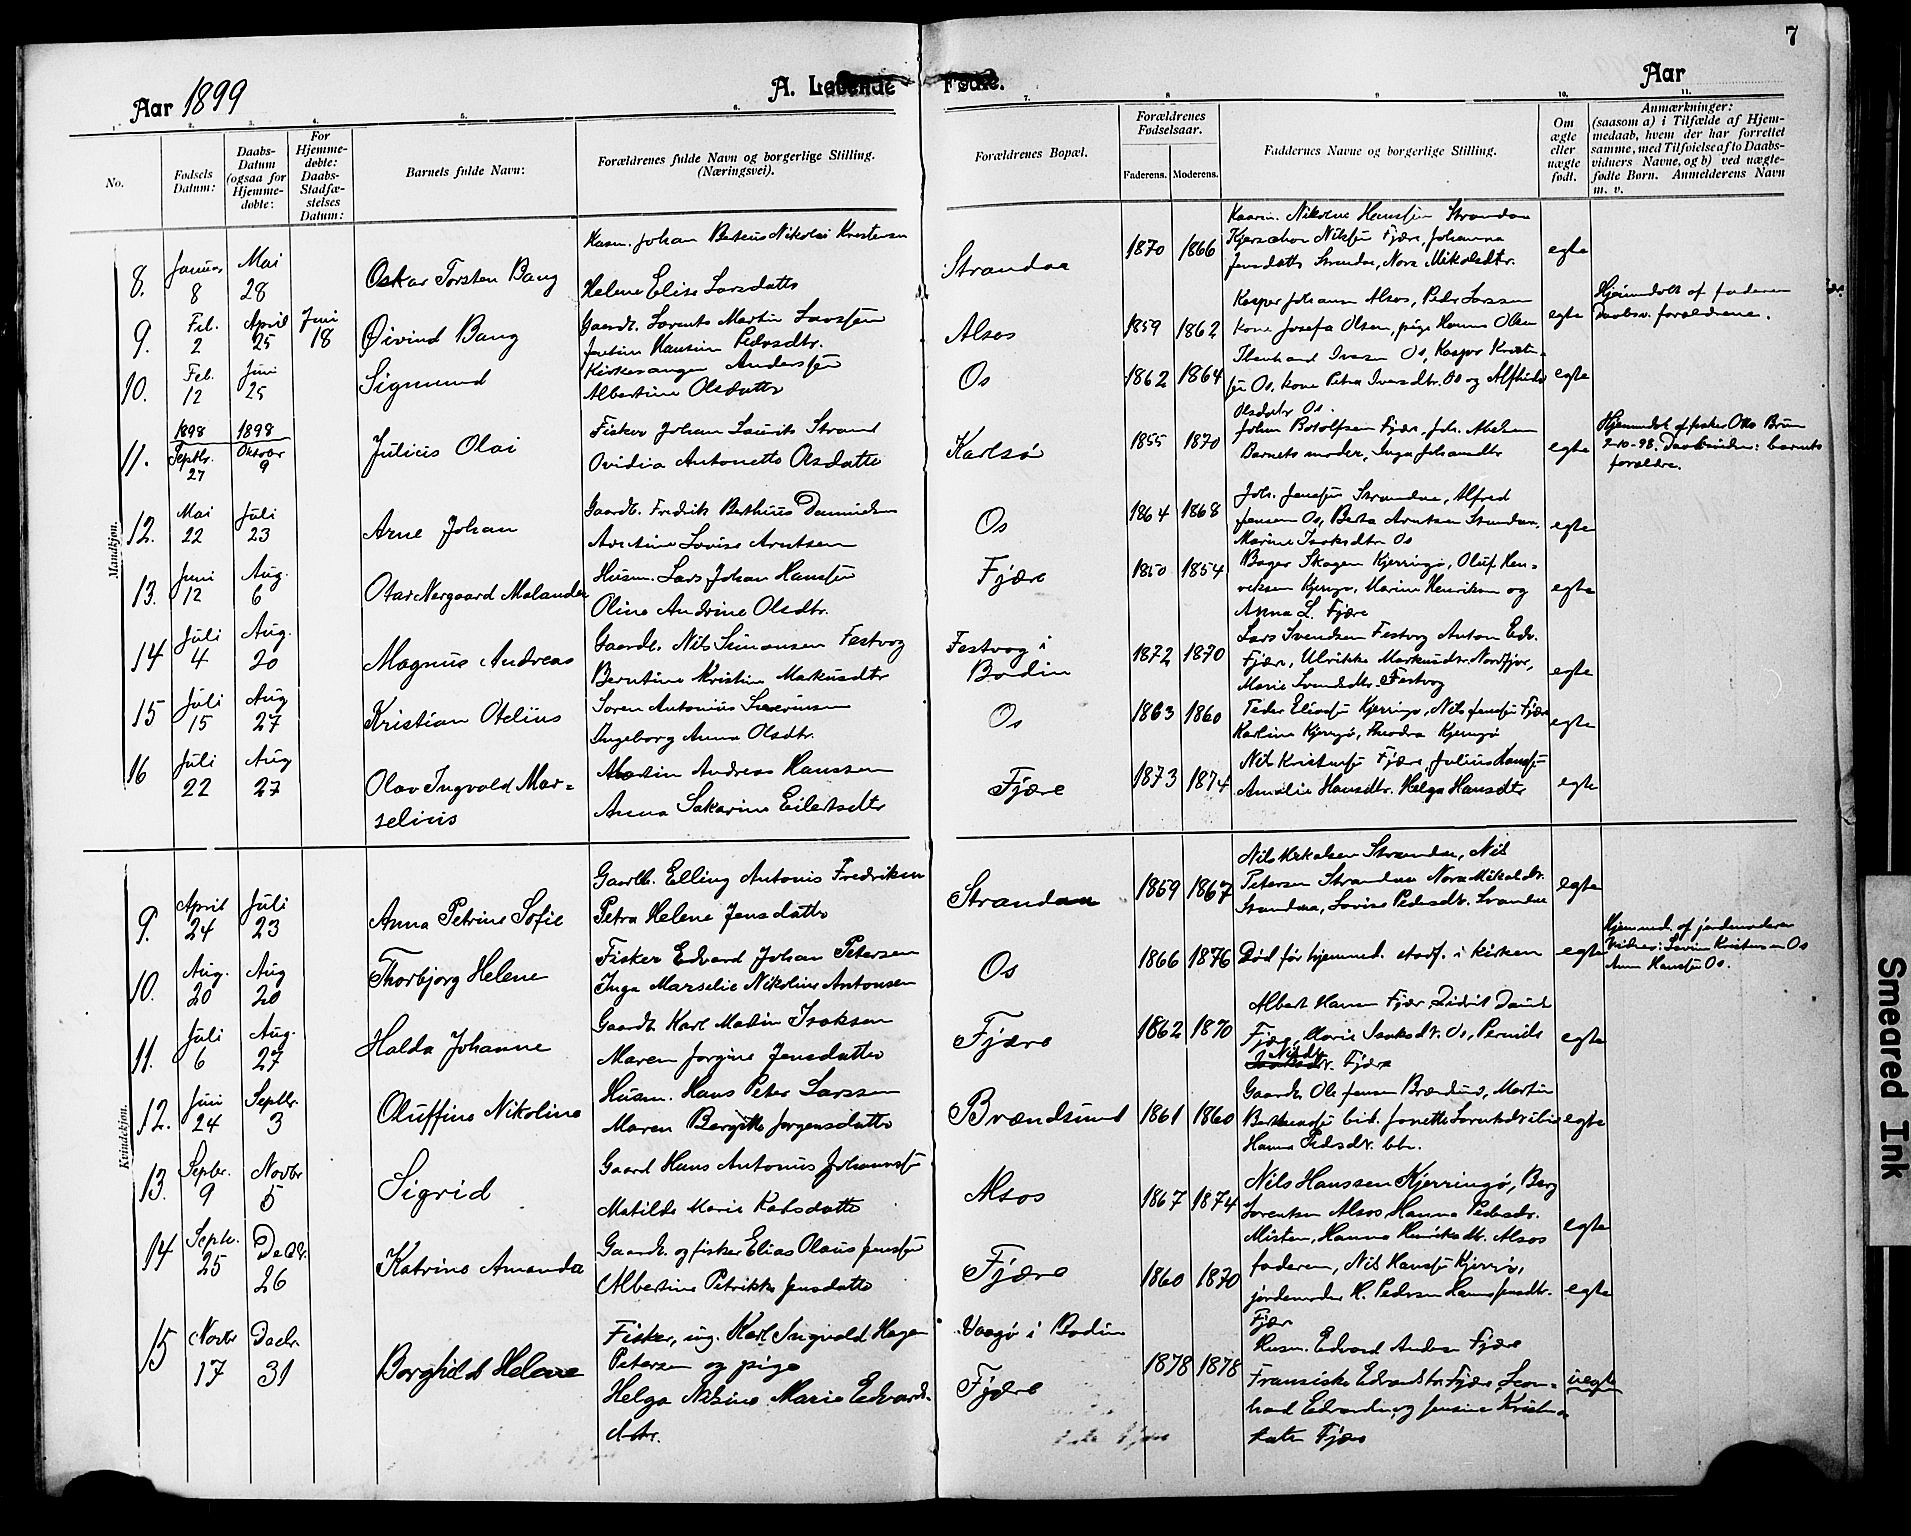 7
Aar 1899
A. Levende Fødte.
Aar
1. 2. 3. 4. 5. 6. 7. 8. 9. 10. 11.
No.
Fødsels Datum:
Daabs-Datum (ogsaa for Hjemme-døbte:
For Hjemme-døbte: Daabs-Stadfæ-stelses Datum:
Barnets fulde Navn:
Forældrenes fulde Navn og borgerlige Stilling. (Næringsvei).
Forældrenes Bopæl.
Forældrenes Fødselsaar.
Faderens. Moderens.
Faddernes Navne og borgerlige Stilling.
Om ægte eller uægte født.
Anmærkninger:
(saasom a) i Tilfælde af Hjem-
medaab, hvem der har forrettet
samme, med Tilføielse af to Daabs-
vidners Navne, og b) ved uægte-
fødte Børn. Anmelderens Navn
m. v.
Mandkjøn.
8. Januar 8 Mai 28
Oskar Torsten Bang
Husm. Johan Berteus Nikolai Kristensen
Helene Elise Larsdatter
Strandaa
1870 1866
Nikoline Hanssen Strandaa
Nilssen Fjære, Johanna
Jensdatter Strandaa, Nora Mikalsdtr.
egte
9. Feb. 2 April 25 Juni 18
Øivind Bang
Gaardb. Lorents Martin Larssen
Hansine Pedersdtr.
Alsos
1859 1862
Kasper Johansen Alsos, Peder Larssen
kone Josefa Olsen, pige Hanna Olsen
egte
Hjemmedøbt af faderen
Daabsv. forældrene.
10. Feb. 12 Juni 25
Sigmund
Kirkesanger Anderssen
Albertine Olsdatter
Os
1862 1864
Iversen Os, Kasper Kristen-
sen Os, kone Petra Iversdtr. Os og Alfhilde
Olsdatter Os.
egte
11. 1898 Septbr. 27 1898 Oktober 9
Julius Olai
Fisker Johan Laurits Strand
Ovidia Antonette Olsdatter
Karlsø
1855 1870
Johan Rotolfsen Fjære, Joh.
Barnets moder, Inga Johansdtr
egte
Hjemmedøbt af fisker Otto Brun
7-10-98. Daabsvidner: barnets
forældre.
12. Mai 22 Juli 23
Arne Johan
Gaardb. Fredrik Berthius Danielsen
Lovise Arntsen
Os
1864 1868
Joh. Jenssen Strandaa, Alfred
Jensen Os, Berta Arntsen Strandaa,
Marine Isaksdtr. Os
egte
13. Juni 12 Aug. 6
Otar Nergaard Melander
Husm. Lars Johan Hanssen
Oline Andrine Olsdtr.
Fjære
1850 1854
Bager Skagen Kjerringø, Oluf Hen-
riksen Kjerringø, Marine Henriksen og
Anna L. Fjære
egte
14 Juli 4 Aug. 20
Magnus Andreas
Gaardb. Nils Simonsen Festvog
Berntine Kristine Markusdtr
Festvog i
Bodin
1872 1870
Lars Svendsen Festvog Anton Edv.
Fjære, Ulrikke Markusdtr. Nordfjor,
Marie Svendsdtr. Festvog
egte
15 Juli 15 Aug 27
Kristian Otelius
Søren Antonius Severinsen
Ingeborg Anna Olsdtr.
Os
1863 1860
Peder Eliassen Kjerringø, Nils Jenssen Fjære
Karline Kjerringø, Theodra Kjerringø
egte
16 Juli 22 Aug 27
Olav Ingvald Mar=
selius
Martin Andreas Hanssen
Anna Sakarine Eilertsdtr
Fjære
1873 1874
Nils Kristensen Fjære, Julius Hanssen
Amalie Hansdtr. Helga Hansdtr
egte
Kvindekjøn.
9. April 24 Juli 23
Anna Petrine Sofie
Gaardb. Elling Antonis Fredriksen
Petra Helene Jensdatter
Strandaa
1869 1867
Nils Mikalsen Strandaa, Nils
Petersen Strandaa Nora Mikalsdtr.
Strandaa, Lovise Pedersdtr. Strandaa
egte
10. Aug. 20 Aug 20
Thorbjorg Helene
Fisker Edvard Johan Petersen
Inga Marselie Nikoline Antonsen
Os
1866 1876
Død før hjemmed. stadf. i kirken
egte
Hjemmed. af jordemoderen
Vidner: Kristensen Os
Anna Hanssen Os.
11. Juli 6 Aug. 27
Halda Johanne
Gaardb. Karl Martin Isaksen
Maren Jorgine Jensdatter
Fjære
1862 1870
Albert Hansen Fjære, Didrik
Fjære, Marie Isaksdtr. Os, Pernille
Nilsdtr. Fjære
egte
12. Juni 24 Septbr. 3
Oluffine Nikoline
Husm. Hans Peter Larssen
Maren Bergitte Jørgensdatter
Brændsund
1861 1860
Gaardb. Ole Jensen Brændsund, Martin
Jonette
Hanna Pedersdtr.
egte
13. Septbr. 9 Novbr 5
Sigrid
Gaard Hans Antonius Johannssen
Matilde Marie Karlsdatter
Alsos
1867 1874
Nils Hanssen Kjerringø, Berg
Lorentsen Alsos, Hanna Pedersdr.
Misten, Hanna Henriksdtr. Alsos
egte
14 Septr. 25 Decbr. 26
Katrine Amanda
Gaardb. og fisker Elias Olaus Jenssen
Albertine Petrikke Jensdatter
Fjære
1860 1870
faderen, Nils Hanssen Kjerringø,
jordemoder H. Pedersen Hanna Jensdtr.
Fjær
egte
15 Novbr 17 Decbr. 31
Borghild Helene
Fisker, ug. Karl Ingvald Hagen
Petersen og pige
Helga Nilsine Marie Edvards-
dtr.
Vaagø i Bodin
Fjære
1878 1878
Husm. Edvard Andersen Fjære
Fransiska Edvardsdtr. Fjære, Leon-
hard Edvardsen og Jensine Kristine
Fjære
uegte
Smeared Ink